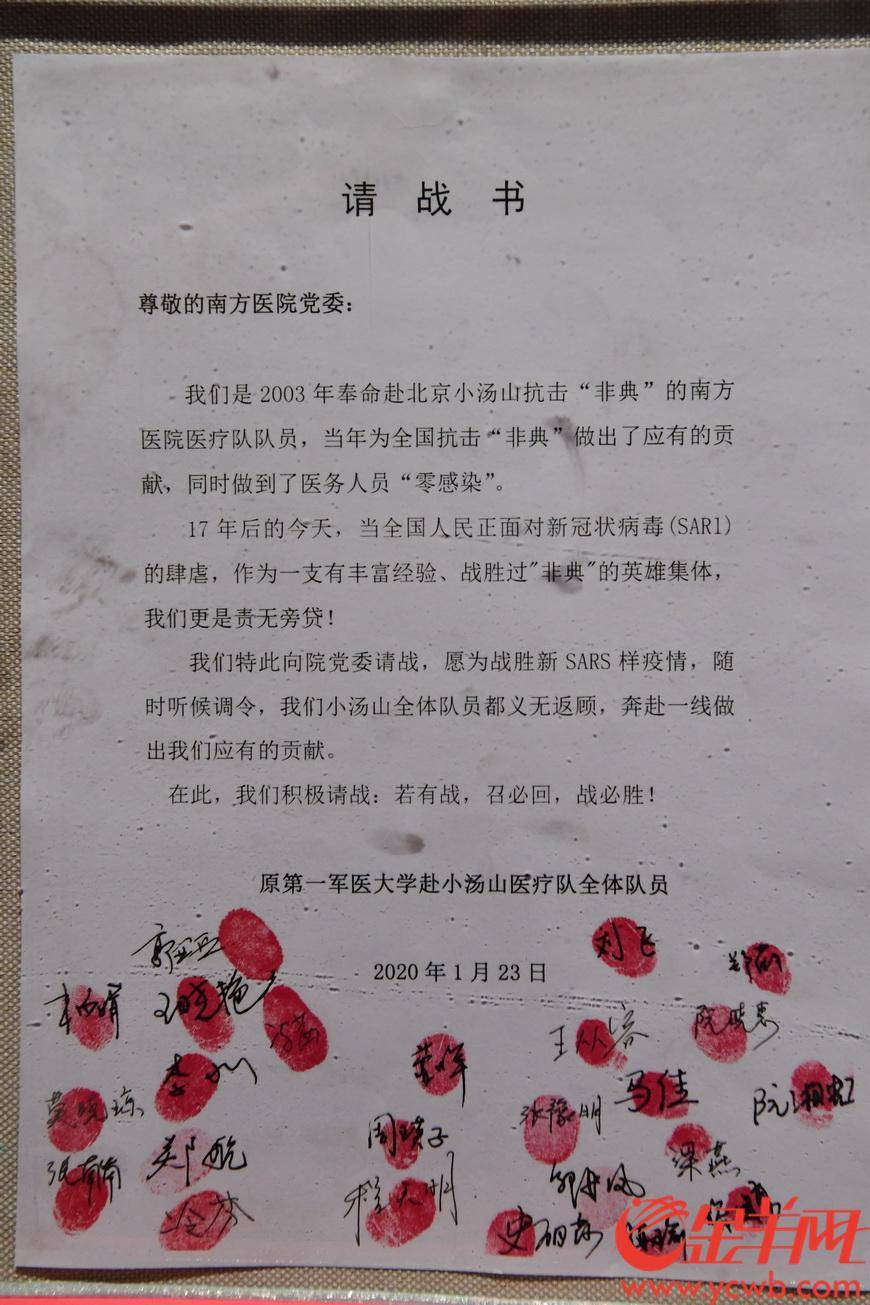 请战书
尊敬的南方医院党委：
我们是2003年奉命赴北京小汤山抗击“非典”的南方
医院医疗队队员，当年为全国抗击“非典”做出了应有的贡
献，同时做到了医务人员“零感染”。
17年后的今天，当全国人民正面对新冠状病毒(SARl)
的肆虐，作为一支有丰富经验、战胜过"非典"的英雄集体，
我们更是责无旁贷！
我们特此向院党委请战，愿为战胜新SARS样疫情，随
时听候调令，我们小汤山全体队员都义无返顾，奔赴一线做
出我们应有的贡献。
在此，我们积极请战：若有战，召必回，战必胜！
原第一军医大学赴小汤山医疗队全体队员
刘飞
2020年1月23日
王晓艳
王从容
阮晓惠
莫晓琼
张豫明
马佳
阮湘虹
张南南
郑航
周瑛子
梁燕
程大明
金羊网
www.ycwb.com